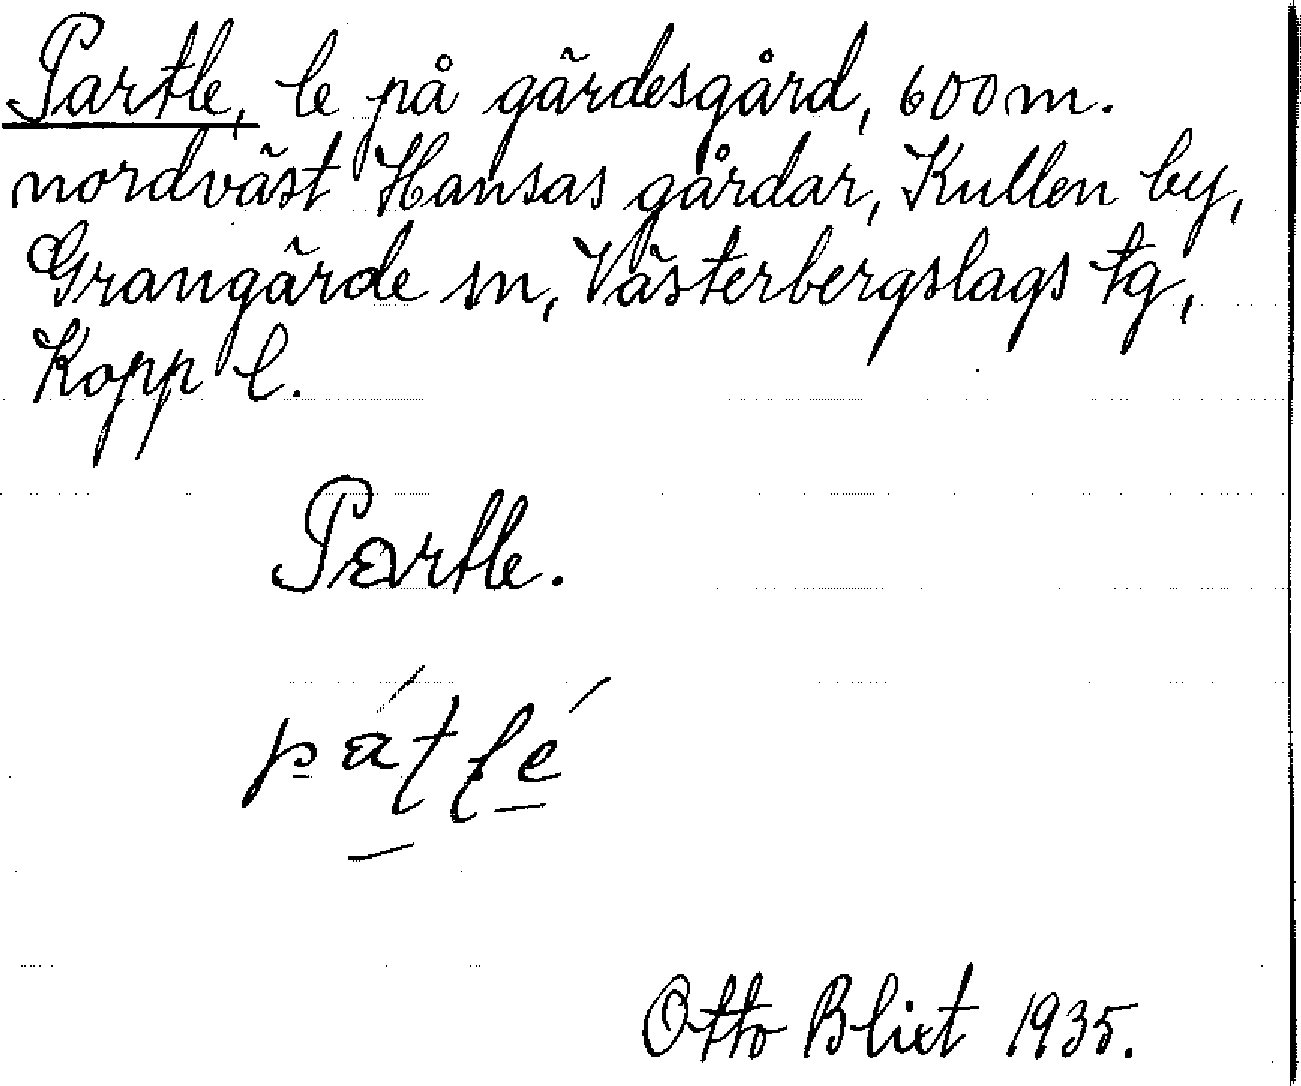 Partle, le på gärdesgård, 600 m.
nordväst Hansas gårdar, Kullen by,
Grangärde sn, Västerbergslags tg,
Kopp l.
Partle.
Otto Blixt 1935.